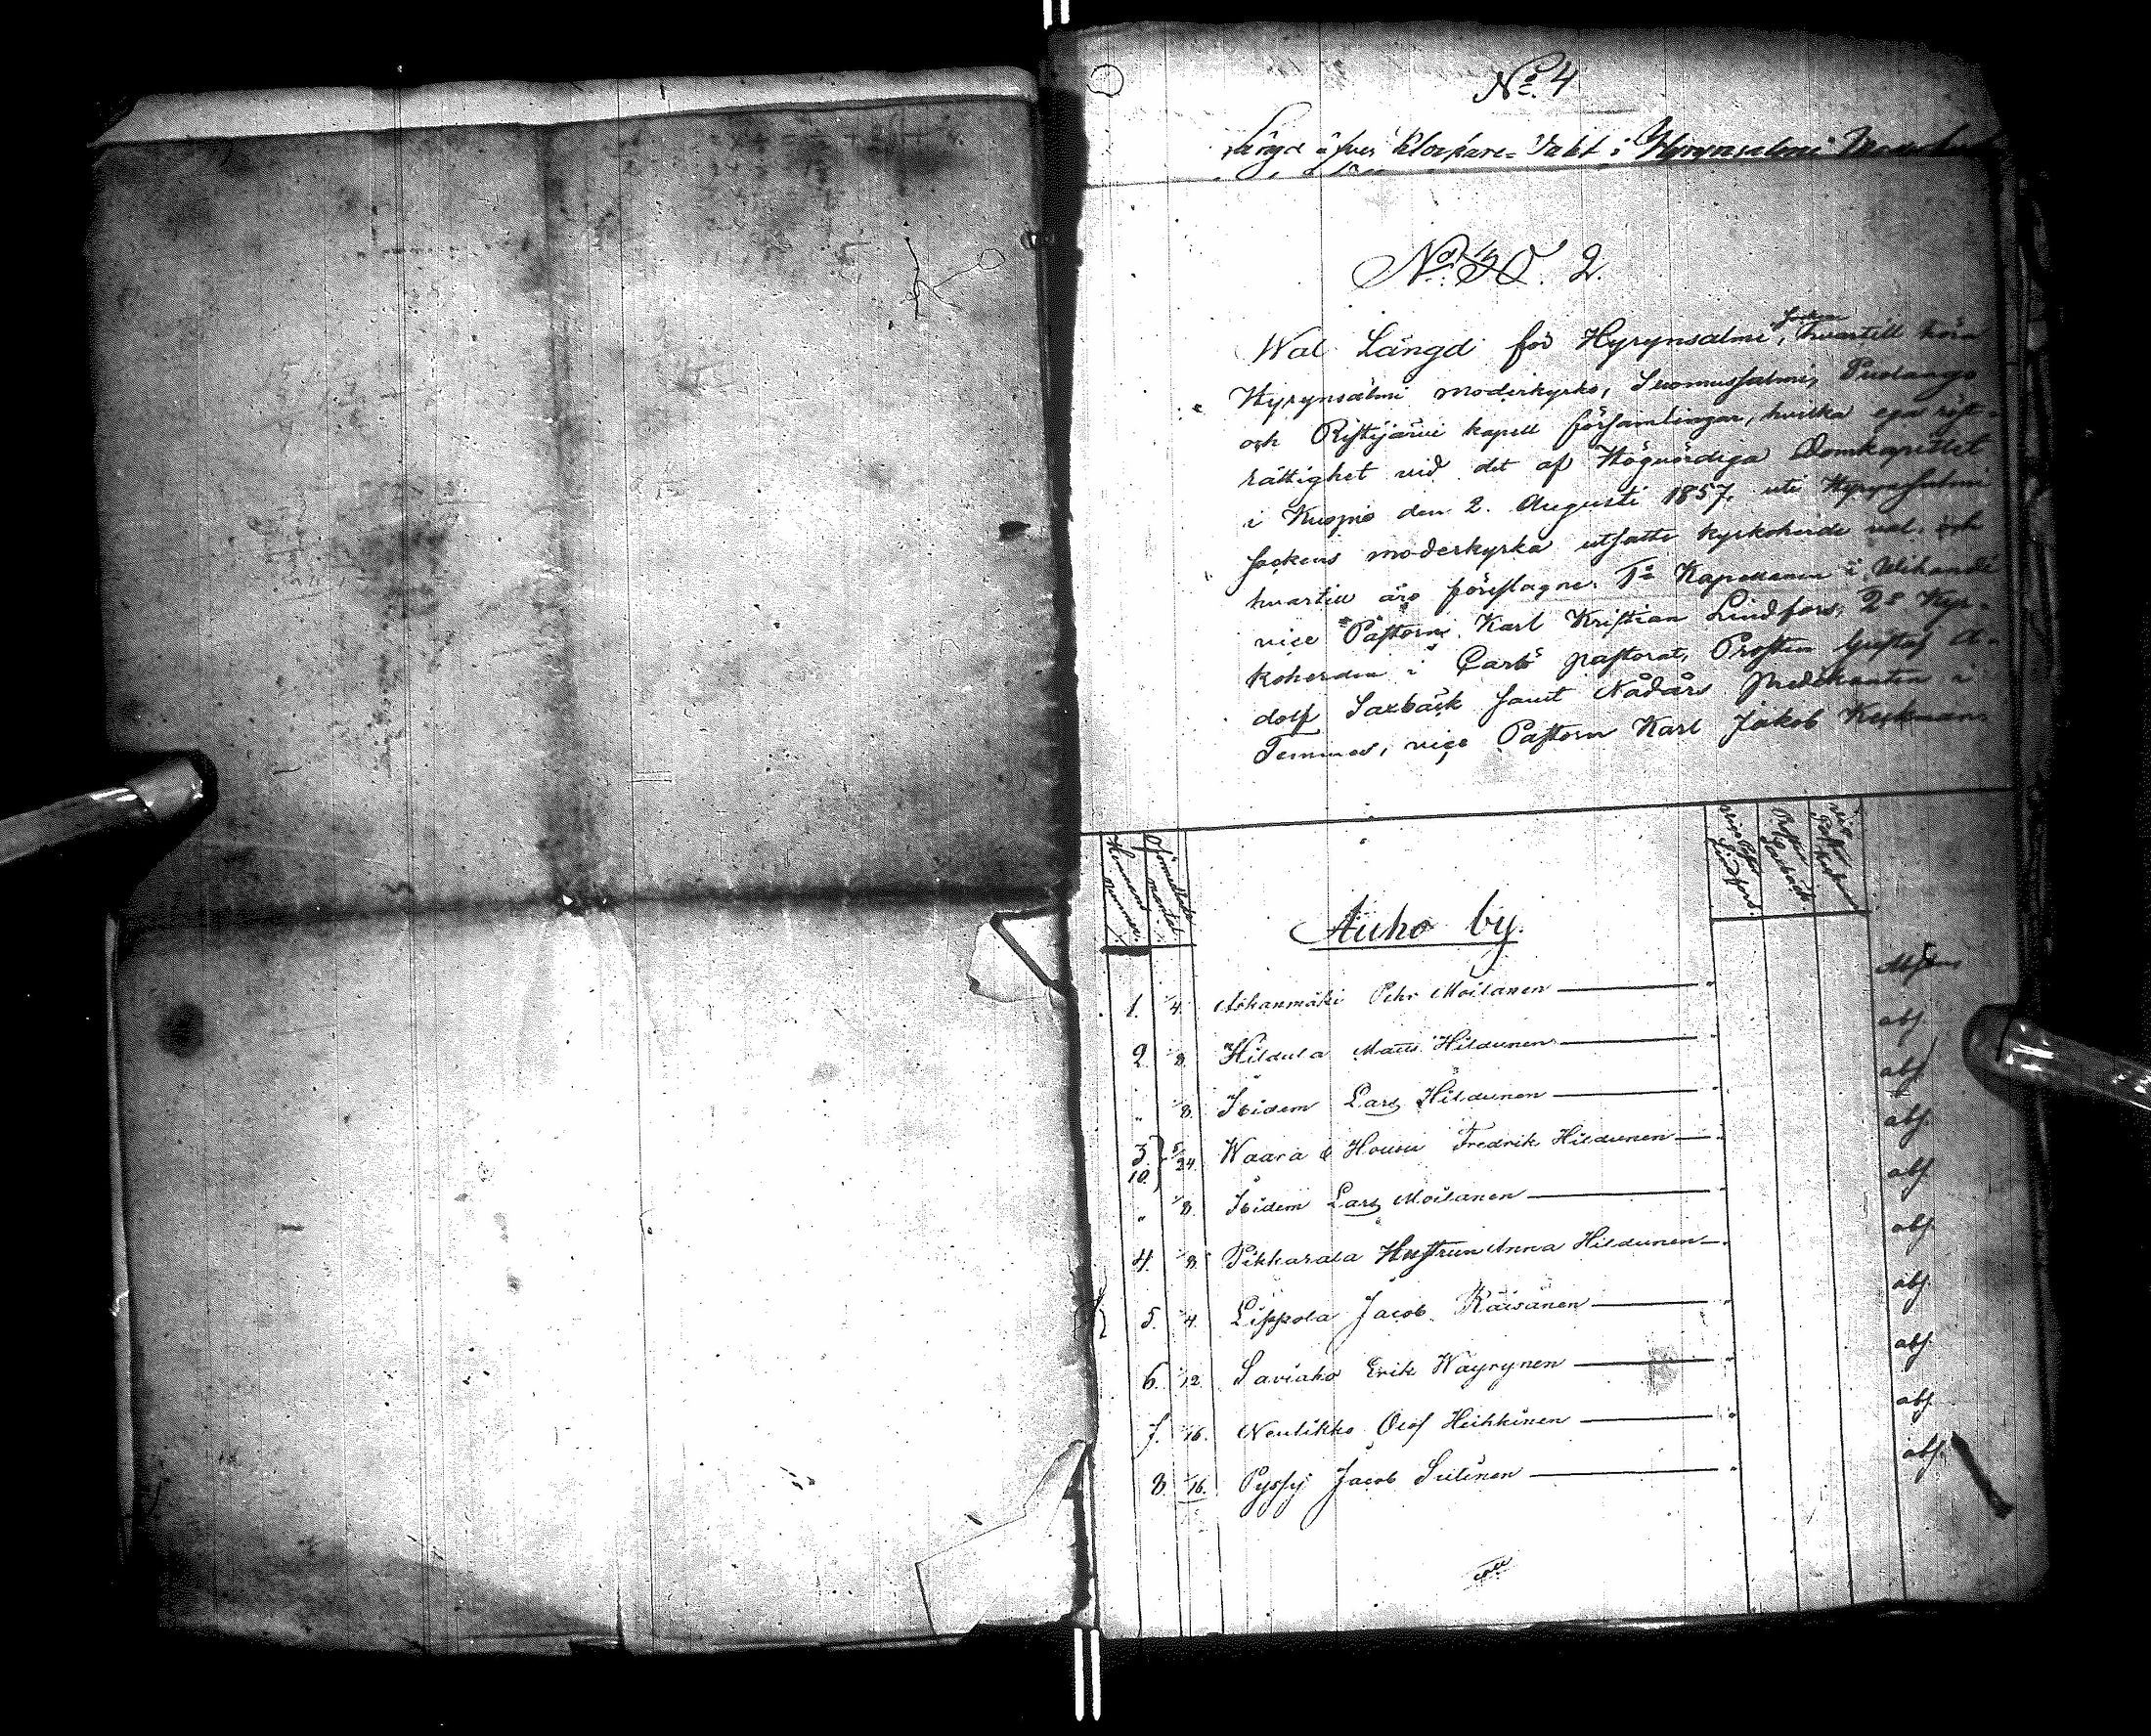 No. 4
Längd öfver Klockare-Valet i Hyrynsalmi
No. 2.
Wal Längd för Hyrynsalmi Socken, hvartill höra
Hyrynsalmi moderkyrko, Suomussalmi, Puolango
och Ristijärvi kapell församlingar, hvilka ega röst-
rättighet vid det af Högvördiga Domkapitlet
i Kuopio den 2. Augusti 1857. uti Hyrynsalmi
sockens moderkyrka utsatte kyrkoherde val. och
hvartill äro föreslagne. 1o Kapellanen i Wihandi
vice Pastorn Karl Kristian Lindfors, 2o Kyr-
koherden i pastorat, Prosten Gustaf A-
dolf Saxbäck samt Nådårs Predikanten i
Temmes, vice Pastorn Karl Jakob Keckman
Hemmans nummer. Förmedladt mantal. vice Pastor Lindfors. Prosten Saxbäck. vice Pastor
Auho by.
1. 1/4. Moilanen — "
2 1/8. Hildula Matts Hildunen — " abs.
" 1/8. Ibidem Lars Hildunen — " abs.
3. 10. } 5/24. Waara & Fredrik Hildunen — " abs.
" 1/8. Ibidem Lars Moilanen — " abs.
4. 1/8. Pikkarala Hustrun Anna Hildunen — " abs.
5. 1/4. Lippola Jacob Räisänen — " abs.
6. 1/12 Saviaho Erik Wäyrynen — " abs.
7. 1/16. Neulikko Olof Heikkinen — " abs.
8 1/16. Pyssy Jacob — " abs.